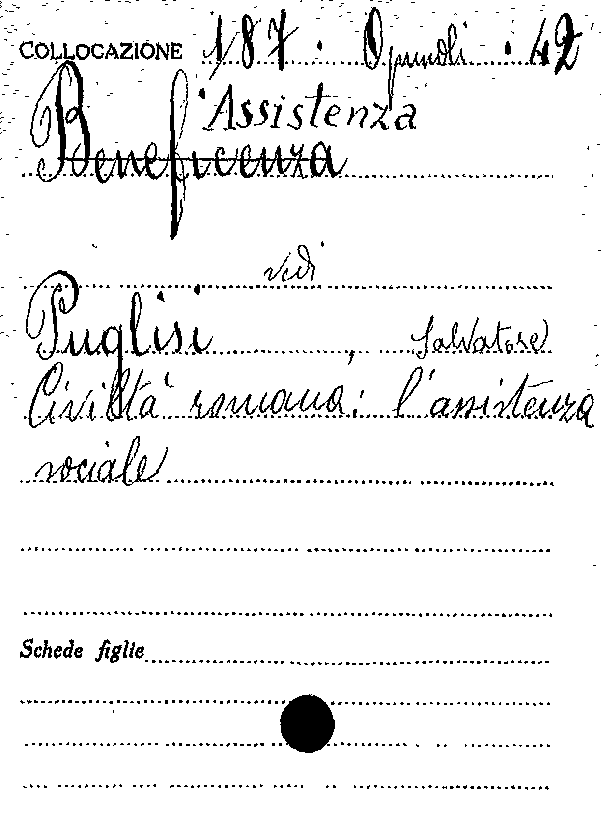 COLLOCAZIONE 187. Opuscoli. 42
Assistenza
Beneficenza
vedi
Puglisi, Salvatore
Civiltà romana: l'assistenza
sociale
Schede figlie